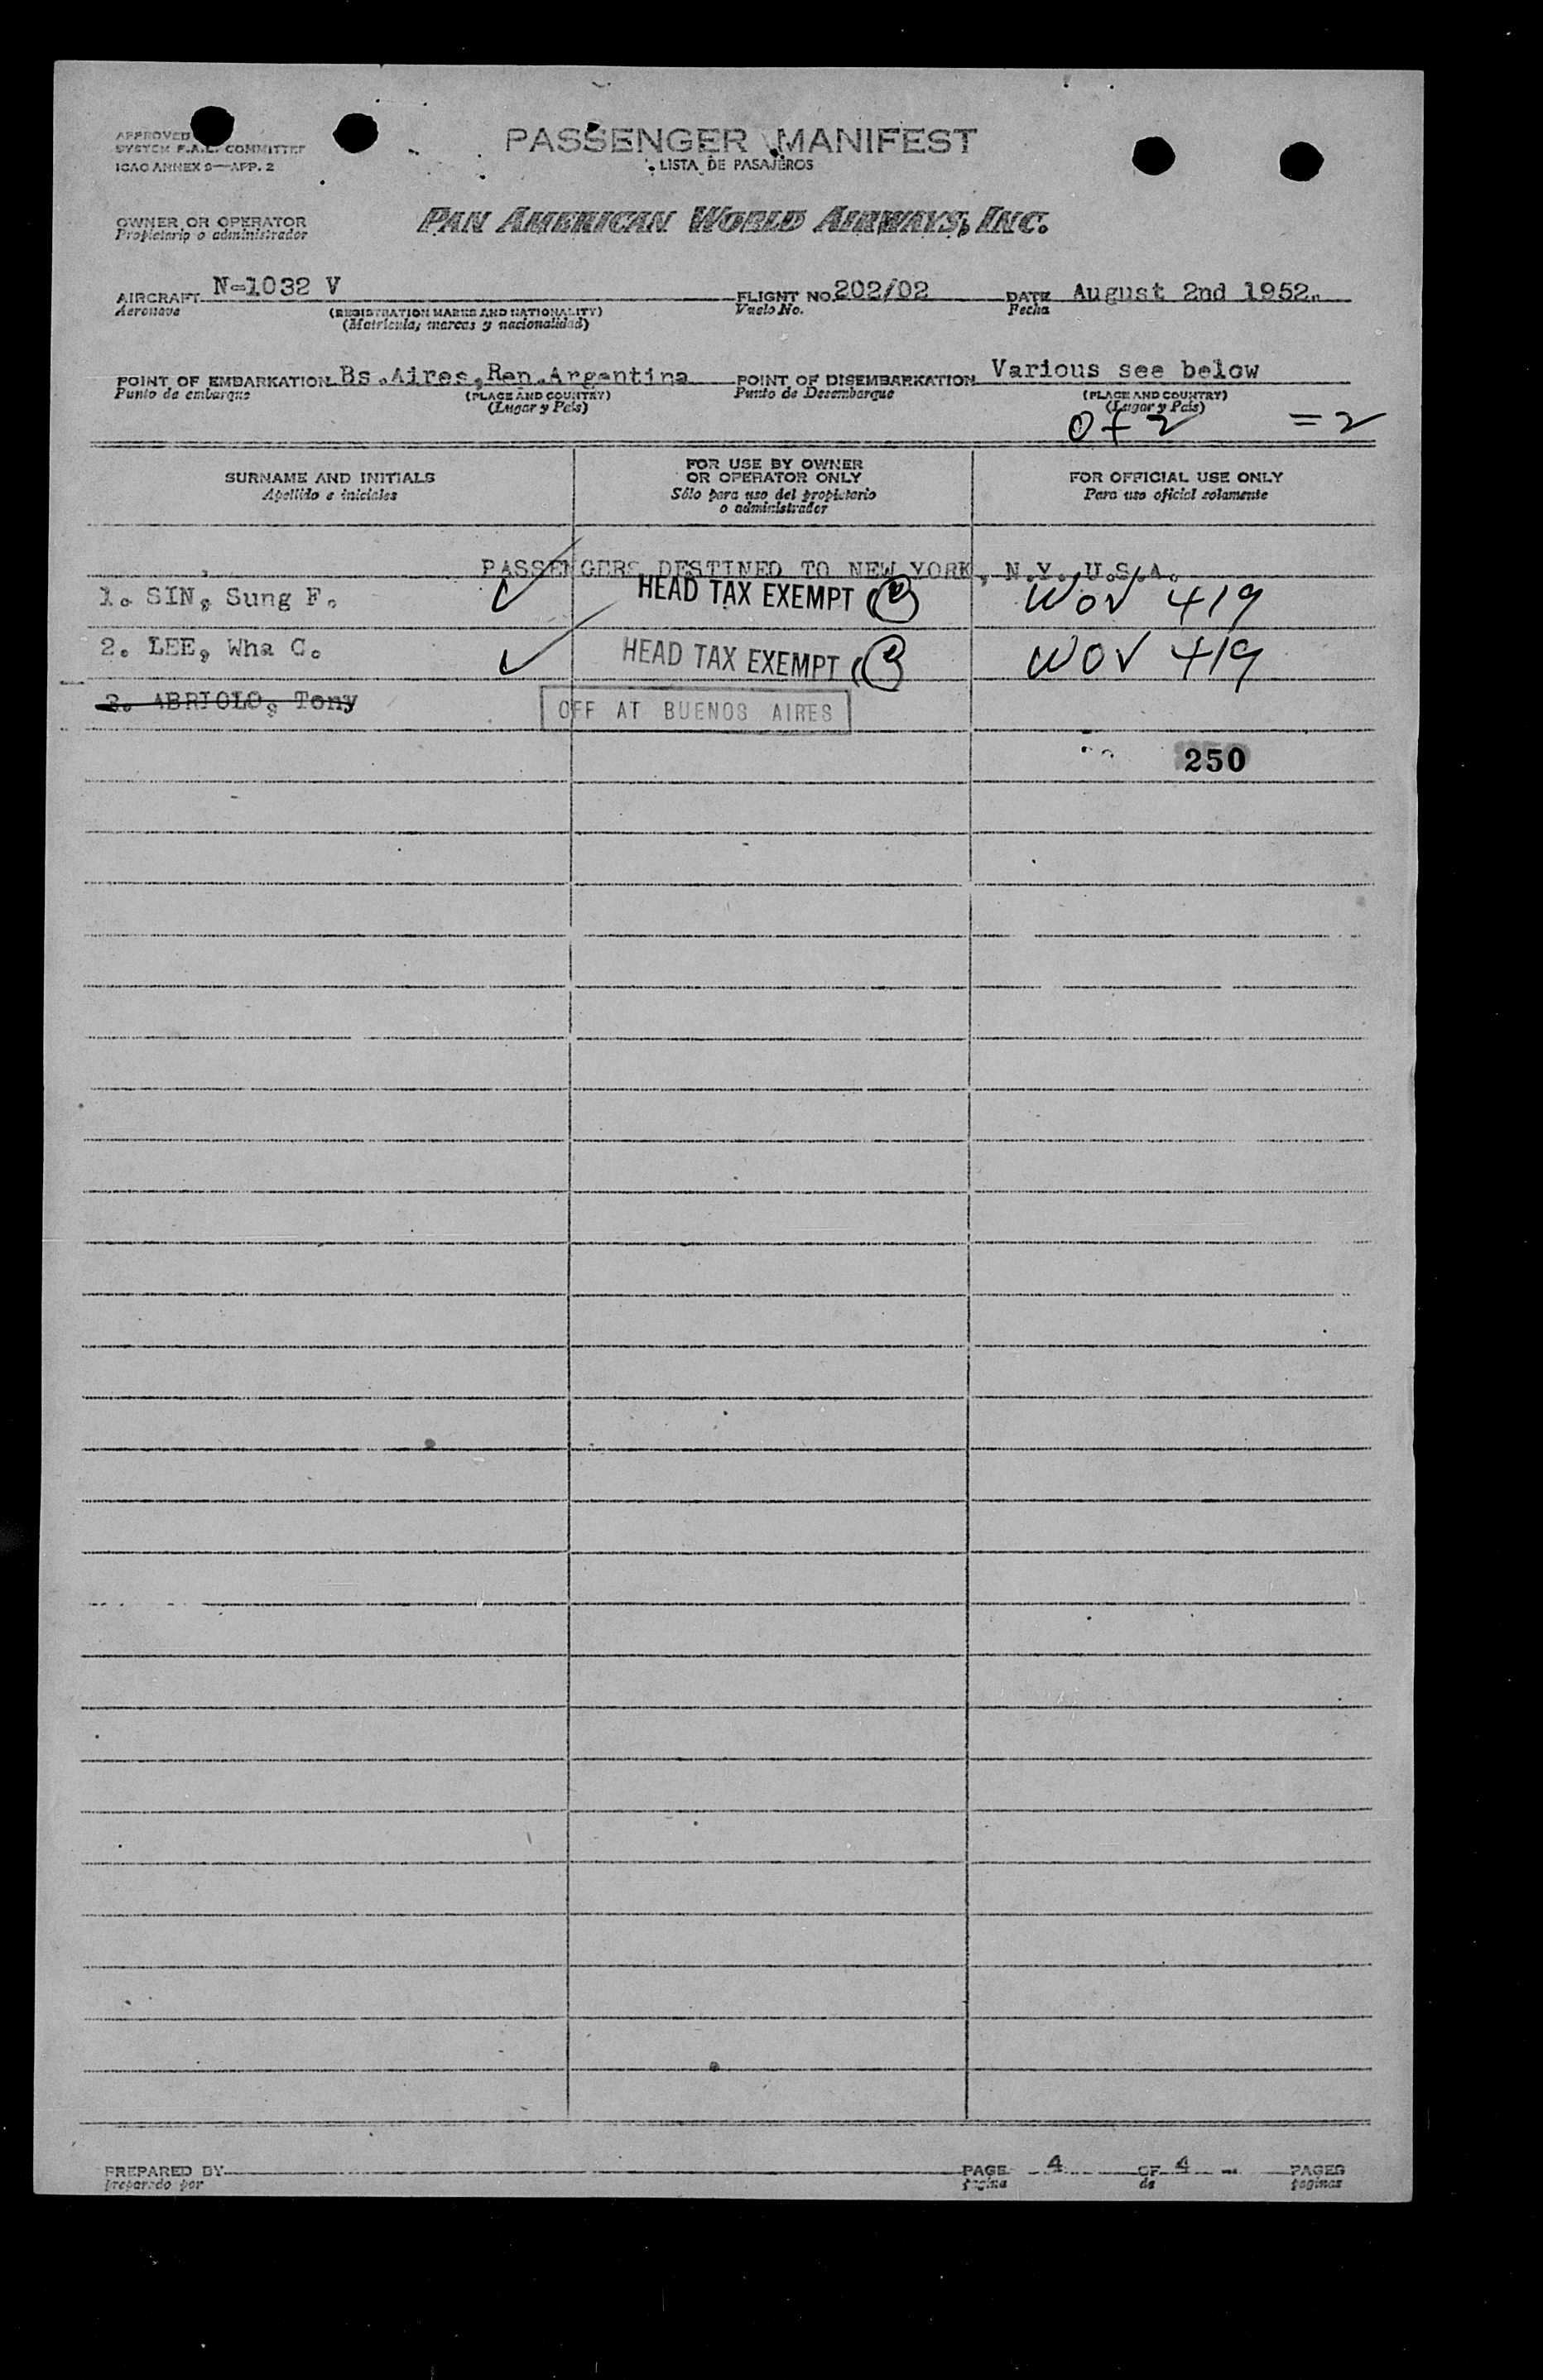 APPROVED
SYSTEM F.A.L. COMMITTEE
ICAO ANNEX 9—APP. 2
PASSENGER MANIFEST
LISTA DE PASAJEROS
OWNER OR OPERATOR
Propietario o administrador
PAN AMERICAN WORLD AIRWAYS, INC.
AIRCRAFT N-1032 V FLIGHT NO. 202/02 DATE August 2nd 1952.
Aeronave (REGISTRATION MARKS AND NATIONALITY) Vuelo No. Fecha
(Matrícula, marcas y nacionalidad)
POINT OF EMBARKATION Bs.Aires,Rep.Argentina POINT OF DISEMBARKATION Various see below
Punto de embarque (PLACE AND COUNTRY) Punto de Desembarque (PLACE AND COUNTRY)
(Lugar y País) (Lugar y País)
0 + 2 = 2
SURNAME AND INITIALS FOR USE BY OWNER OR OPERATOR ONLY FOR OFFICIAL USE ONLY
Apellido e iniciales Sólo para uso del propietario o administrador Para uso oficial solamente
PASSENGERS DESTINED TO NEW YORK, N.Y., U.S.A.
1. SIN, Sung F. ✓ HEAD TAX EXEMPT WOV 419
2. LEE, Wha C. ✓ HEAD TAX EXEMPT WOV 419
3. ABRIOLO, Tony OFF AT BUENOS AIRES
250
PREPARED BY PAGE 4 OF 4 PAGES
preparado por pagina de paginas